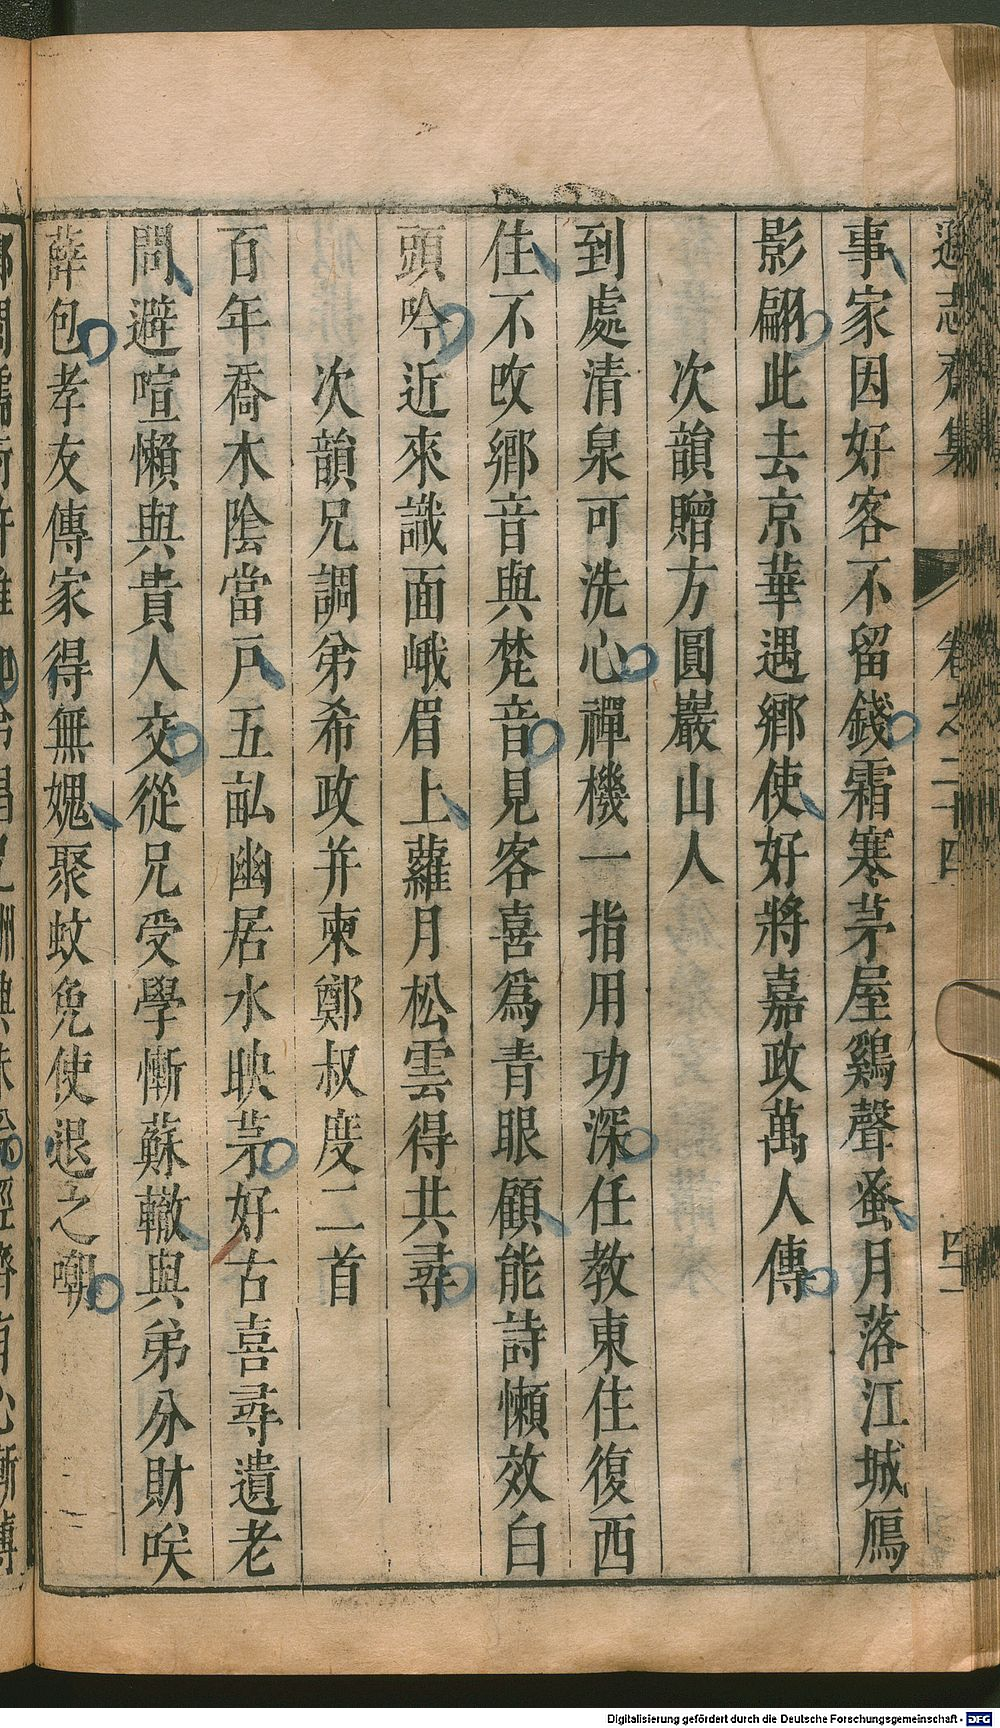 遜志齋集 卷之二十四 四十一
事家因好客不留錢霜寒茅屋鷄聲蚤月落江城鴈
影翩此去京華遇鄉使好將嘉政萬人傳
次韻贈方圓巖山人
到處清泉可洗心禪機一指用功深任教東住復西
住不改鄉音與梵音見客喜爲青眼顧能詩懶效白
頭吟近來識面峨眉上蘿月松雲得共尋
次韻兄調弟希政并柬鄭叔度二首
百年喬木陰當戸五畝幽居水映茅好古喜尋遺老
問避喧懶與貴人交從兄受學慚蘇轍與弟分財咲
薛包孝友傳家得無媿聚蚊免使退之嘲
Digitalisierung gefördert durch die Deutsche Forschungsgemeinschaft - DFG